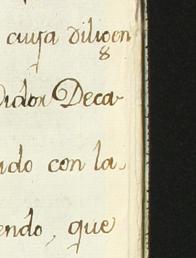 cuya diligen
8
vidor Deca-
ado con la
endo, que